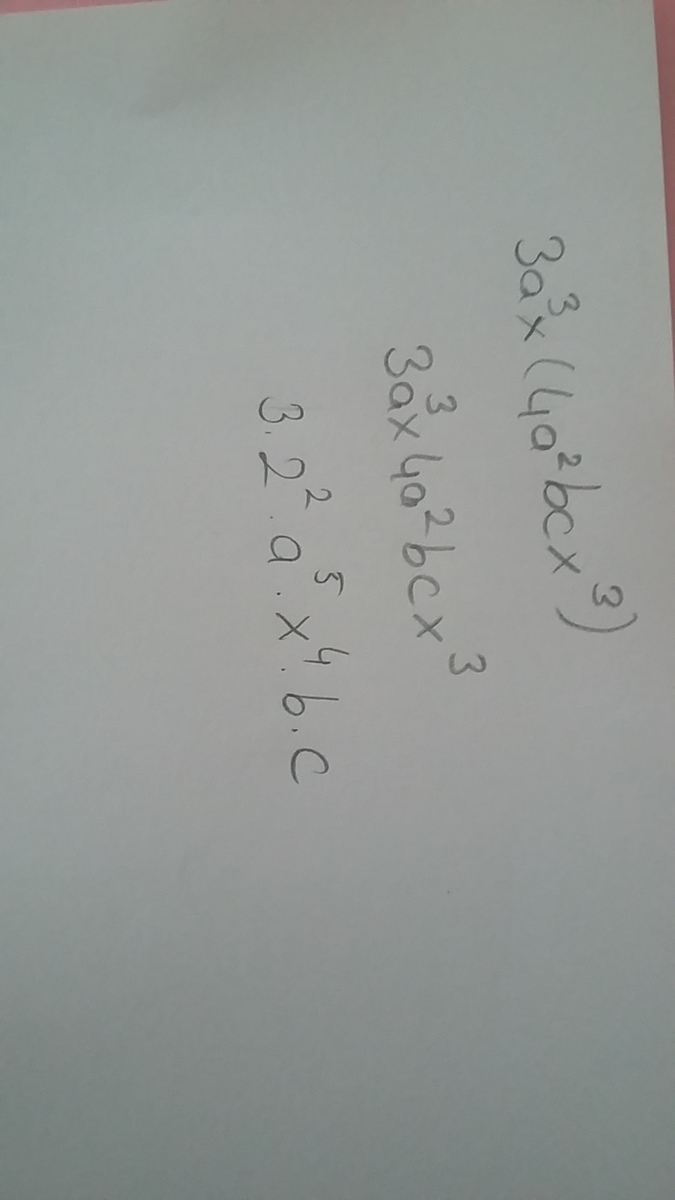 3a³x(4a²bcx³)
3a³x4a²bcx³
3.2².a⁵.x⁴.b.c